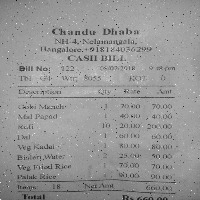 Chandu Dhaba
NH-4, Nelamangala,
Bangalore.+918184036299
CASH BILL
Bill No: 322 08/07/2018 9:48 pm
Tbl G4 Wtr 8055 KOT 0
Description Qty Rate Amt
Gobi Manchu 1 70.00 70.00
Mal Papad 1 40.00 40.00
Roti 10 20.00 200.00
Dal 1 60.00 60.00
Veg Kadai 1 80.00 80.00
Bislery Water 2 25.00 50.00
Veg Fried Rice 1 70.00 70.00
Palak Rice 1 90.00 90.00
Items 18 Net Amt 660.00
Total Rs 660.00